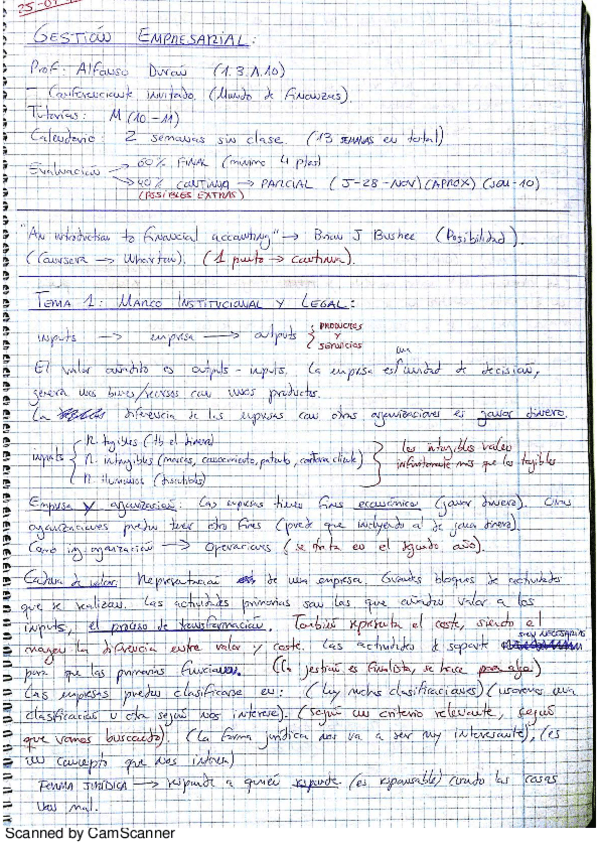 25-01
GESTIÓN EMPRESARIAL:
Prof: Alfonso Durán (1.3.A.10)
- Conferenciante invitado. (Mundo de finanzas).
Tutorías: M (10-11)
Calendario: 2 semanas sin clase. (13 SEMANAS en total)
Evaluación → 60% FINAL (mínimo 4 ptos)
→ 40% CONTINUA → PARCIAL (J-28-NOV) (APROX)
(POSIBLES EXTRAS)
"An introduction to financial accounting" → Brian J Bushee (Posibilidad).
(Coursera → Wharton). (1 punto → continua).
TEMA 1: MARCO INSTITUCIONAL Y LEGAL:
inputs → empresa → outputs { PRODUCTOS
Y
SERVICIOS
El valor añadido es outputs - inputs. La empresa es una unidad de decisión,
genera unos bienes/recursos con unos productos.
La diferencia de las empresas con otras organizaciones es ganar dinero.
inputs { R. tngibles (tb el dinero)
R. intangibles (marcas, conocimiento, patente, cartera cliente)
R. humanos (discutidos)
} los intangibles valen
infinitamente más que los tngibles
Empresa y organización: Las empresas tienen fines económicos (ganar dinero). Otras
organizaciones pueden tener otro fines (puede que incluyendo el de ganar dinero).
Como ing. organización → Operaciones (se trata en el segundo año).
Cadena de valor: Representación de una empresa. Grandes bloques de actividades
que se realizan. Las actividades primarias son las que añaden valor a los
inputs, el proceso de transformación. También representa el coste, siendo el
margen la diferencia entre valor y coste. Las actividades de soporte son necesarias
para que las primarias funcionen. (La gestión es finalista, se hace para algo)
Las empresas pueden clasificarse en: (hay muchas clasificaciones) (usaremos una
clasificación u otra según nos interese). (según un criterio relevante, según
que vamos buscando). (La forma jurídica nos va a ser muy interesante), (es
un concepto que nos interesa)
FORMA JURÍDICA → responde a quién responde (es responsable) cuando las cosas
van mal.
Scanned by CamScanner